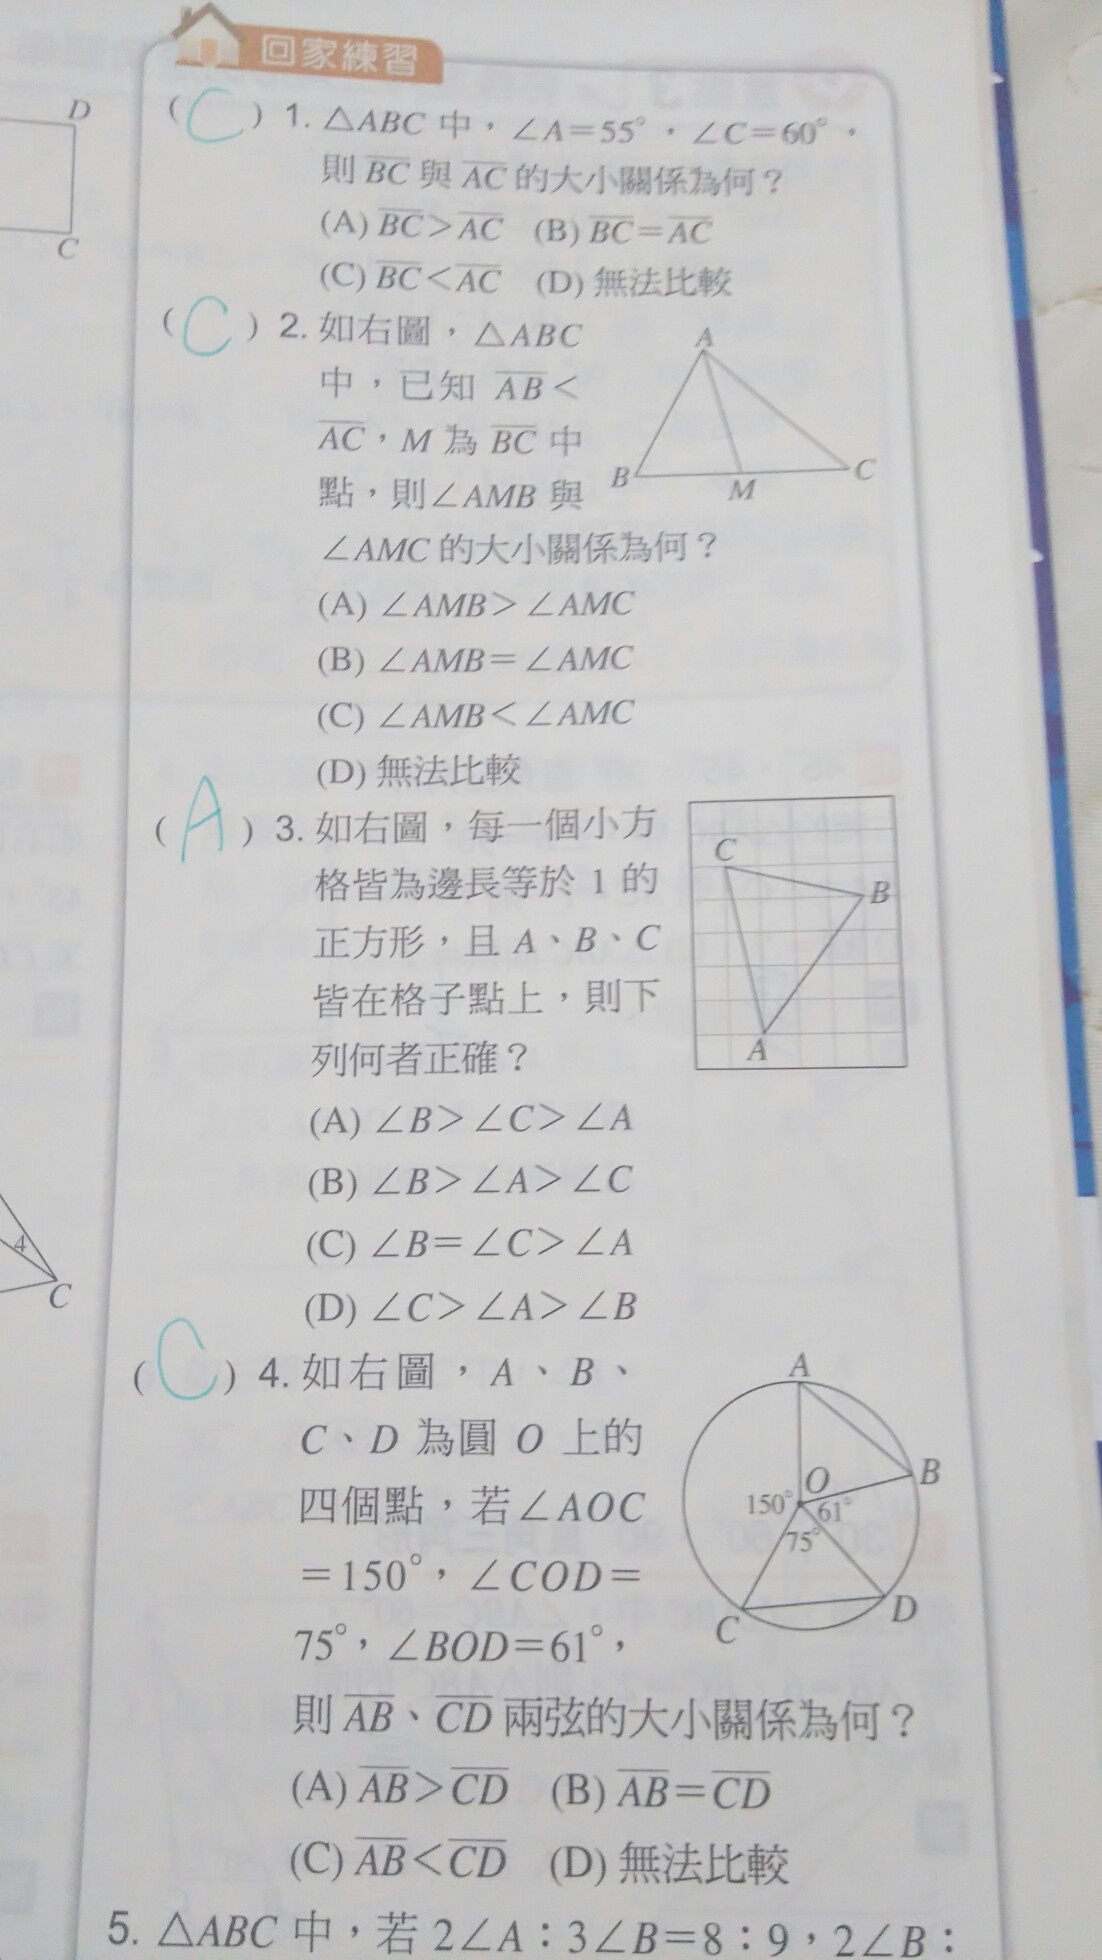 回家練習
(C) 1. △ABC 中，∠A=55°，∠C=60°，
則 BC 與 AC 的大小關係為何？
(A) BC>AC (B) BC=AC
(C) BC<AC (D) 無法比較
(C) 2. 如右圖，△ABC
中，已知 AB<
AC，M 為 BC 中
點，則∠AMB 與
∠AMC 的大小關係為何？
(A) ∠AMB>∠AMC
(B) ∠AMB=∠AMC
(C) ∠AMB<∠AMC
(D) 無法比較
A
B
M
C
(A) 3. 如右圖，每一個小方
格皆為邊長等於 1 的
正方形，且 A、B、C
皆在格子點上，則下
列何者正確？
(A) ∠B>∠C>∠A
(B) ∠B>∠A>∠C
(C) ∠B=∠C>∠A
(D) ∠C>∠A>∠B
C
B
A
(C) 4. 如右圖，A、B、
C、D 為圓 O 上的
四個點，若∠AOC
=150°，∠COD=
75°，∠BOD=61°，
則 AB、CD 兩弦的大小關係為何？
(A) AB>CD (B) AB=CD
(C) AB<CD (D) 無法比較
A
B
O
150°
61°
75°
C
D
5. △ABC 中，若 2∠A：3∠B=8：9，2∠B：
D
C
4
C